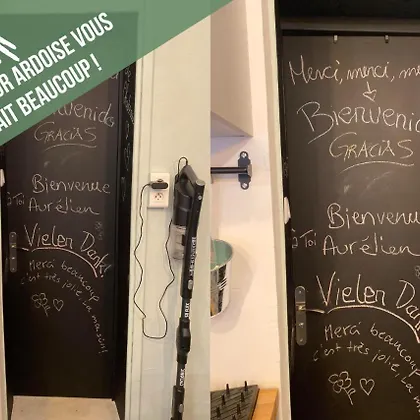 R ARDOISE VOUS
AIT BEAUCOUP !
Bienvenidos
GRACIAS
Bienvenue
à Toi Aurélien
Vielen Dank!
Merci beaucoup
c'est très jolie, la maison!
Merci, merci, me
Bienvenid
GRACIAS
Bienvenue
à Toi Aurélien
Vielen Dan
Merci beauco
c'est très jolie, La